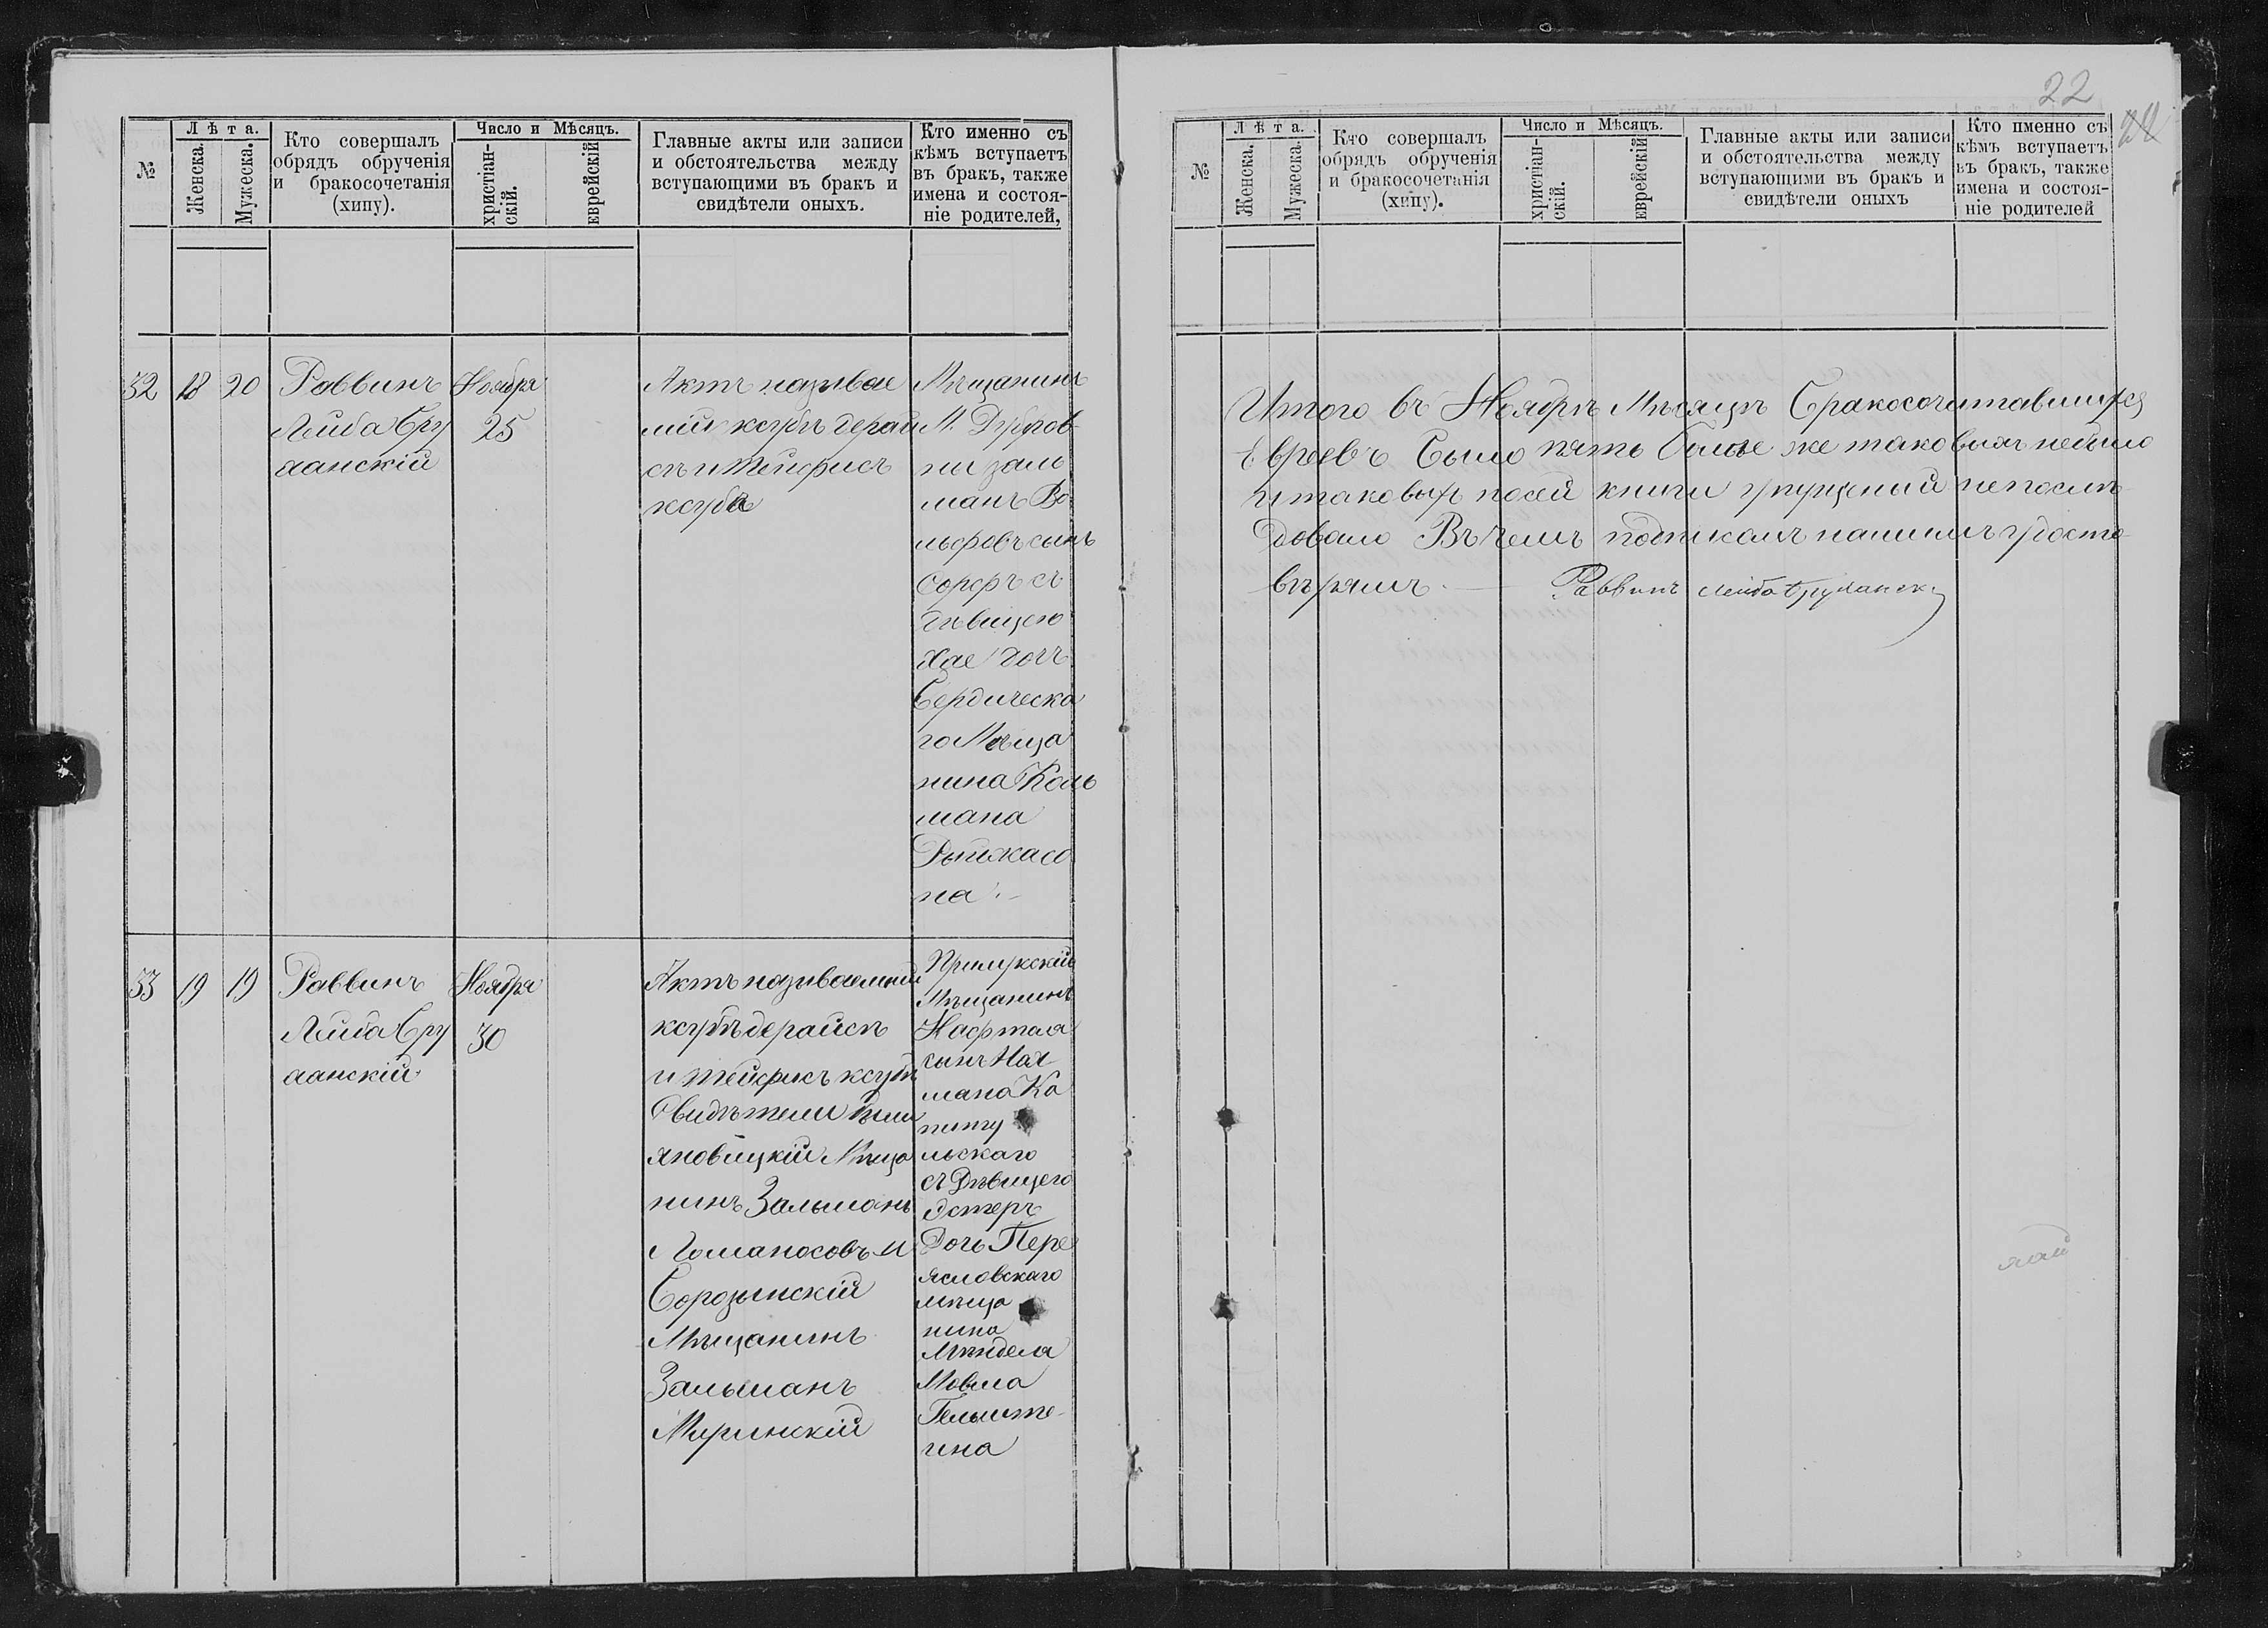 №
Лѣта.
Женска.
Мужеска.
Кто совершалъ
обрядъ обрученія
и бракосочетанія
(хипу).
Число и Мѣсяцъ.
христіан-
скій.
еврейскій
Главные акты или записи
и обстоятельства между
вступающими въ бракъ и
свидѣтели оныхъ.
Кто именно съ
кѣмъ вступаетъ
въ бракъ, также
имена и состоя-
ніе родителей,
32
18
20
Раввинъ
Лейба Бру
Ноября
25
Актъ называе
мій ксубъ дерай
съ и тейфисъ
ксуба
Мѣщанинъ
М. Дубров
ни Заль
манъ Во
льфовъ сынъ
Сорфъ съ
дѣвицею
Хае дочь
Бердическа
го Мѣща
нина Каль
мана
на
33
19
19
Раввинъ
Лейба Бру
Ноября
30
Актъ называемый
ксубъ дерайсъ
и тейфисъ ксубъ
Свидѣтели были
яновицкій Мѣща
нинъ Зальманъ
Ломаносовъ и
Борозынскій
Мѣщанинъ
Зальманъ
Миринскій
Прилукскій
Мѣщанинъ
Нафтала
сынъ Нах
мана Ка
пигу
льскаго
съ Дѣвицего
Эстеръ
Дочь Пере
ясловскаго
мѣща
нина
Мѣндела
Мовша
Гельште-
ина
22
22
№
Лѣта.
Женска.
Мужеска.
Кто совершалъ
обрядъ обрученія
и бракосочетанія
(хипу).
Число и Мѣсяцъ.
христіан-
скій.
еврейскій
Главные акты или записи
и обстоятельства между
вступающими въ бракъ и
свидѣтели оныхъ
Кто именно съ
кѣмъ вступаетъ
въ бракъ, также
имена и состоя-
ніе родителей
Итого въ Ноябрѣ Мѣсяцѣ Бракосочитавшихся
Евреевъ было пять болѣе же таковыхъ небыло
и таковыхъ посей книги упущеній непослѣ
довало Въ чемъ подписомъ нашимъ удосто
вѣряемъ — Раввинъ Лейба